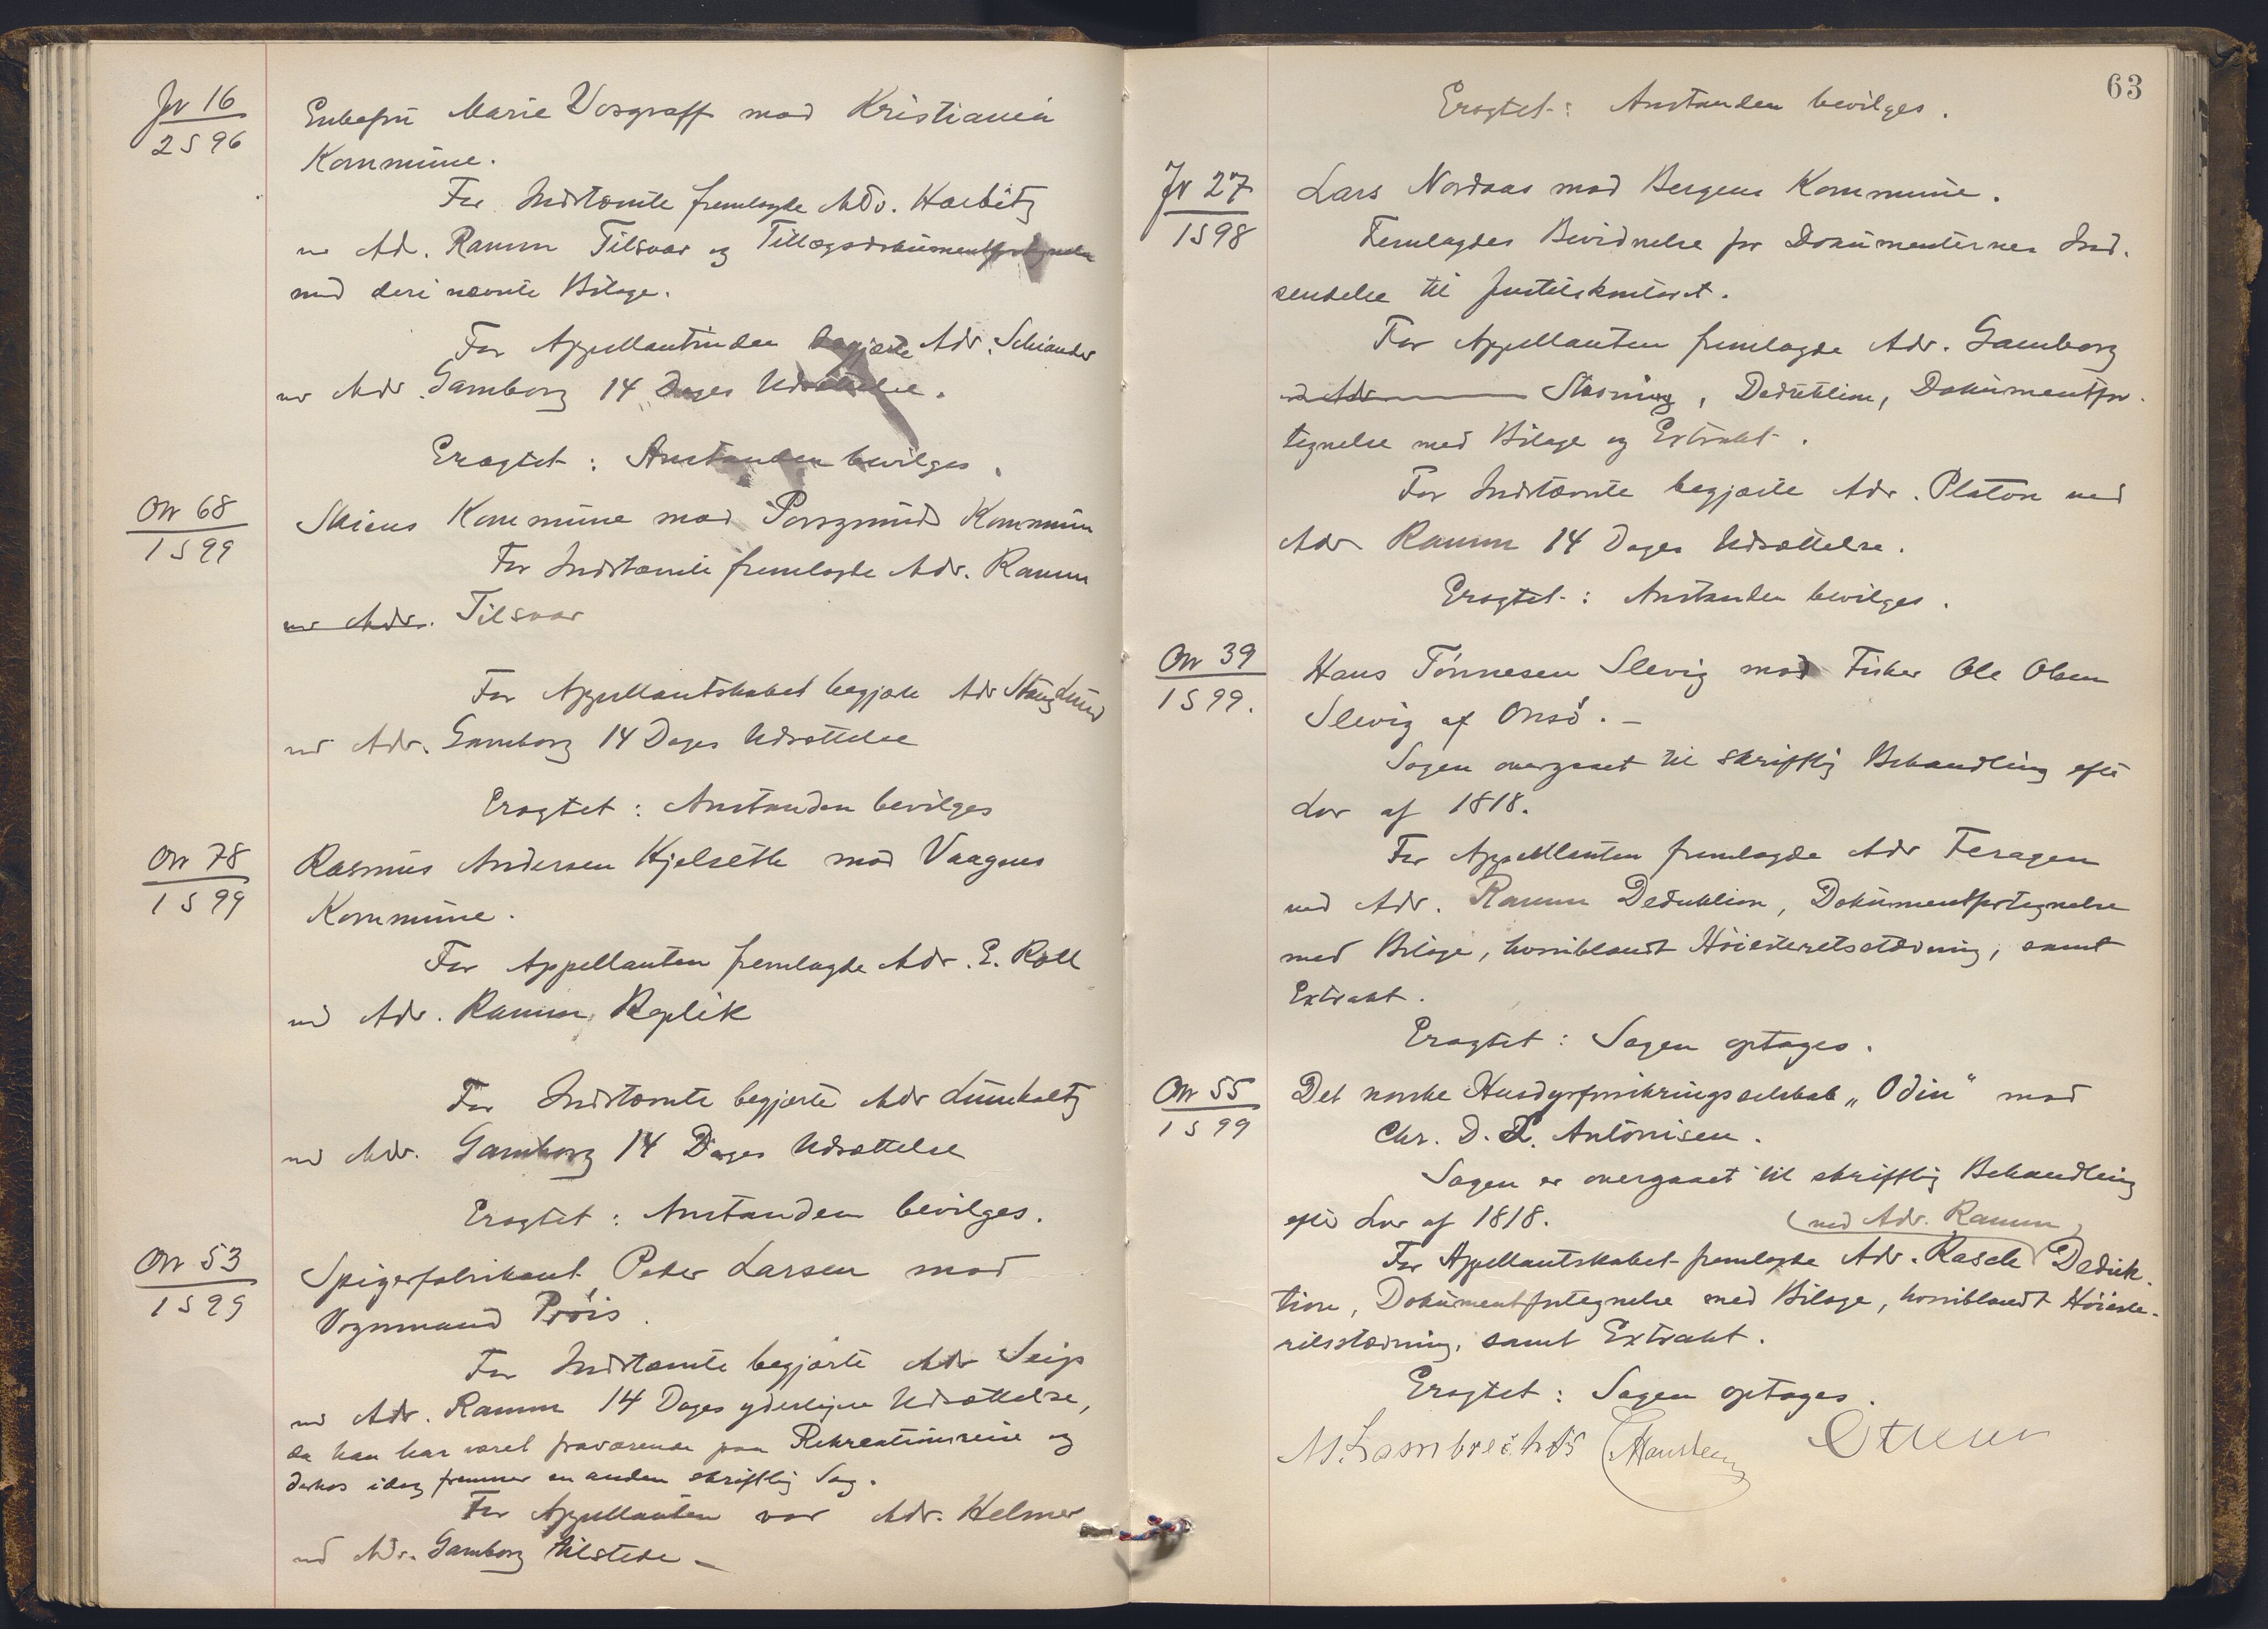 Jr 16
2 S 96
Enkefru Marie Vosgraff mod Kristiania
Kommune.
For Indstævnte fremlagde Adv. Harbitz
ved Ad. Ramm Tilsvar og Tillægsdokumentfortegnelse
med deri nævnte Bilage.
For Appellantinden begjærte Adv. Schiander
ved Adv. Gamborg 14 Dages Udsættelse.
Eragtet: Anstanden bevilges.
Or 68
1 S 99
Skiens Kommune mod Porsgrunds Kommune
For Indstævnte fremlagde Adv. Ramm
ved Adv. Tilsvar
For Appellantskabet begjærte Adv Stang Lund
ved Adv. Gamborg 14 Dages Udsættelse
Eragtet: Anstanden bevilges
Or 78
1 S 99
Rasmus Andersen Kjelseth mod Vaagens
Kommune.
For Appellanten fremlagde Adv. E. Roll
ved Adv. Ramm Replik
For Indstævnte begjærte Adv Lumholtz
ved Adv. Gamborg 14 Dages Udsættelse
Eragtet: Anstanden bevilges.
Or 53
1 S 99
Spigerfabrikant Peter Larsen mod
Vognmand Prøis.
For Indstævnte begjærte Adv Seip
ved Adv. Ramm 14 Dages yderligere Udsættelse,
da han har været fraværende paa Rekreationsreise og
derhos idag fremmer en anden skriftlig Sag.
For Appellanten var Adv. Helmer
ved Adv. Gamborg tilstede –
63
Eragtet: Anstanden bevilges.
Jr 27
1 S 98
Lars Nordaas mod Bergens Kommune.
Fremlagdes Bevidnelse for Dokumenternes Ind-
sendelse til Justitskontoret.
For Appellanten fremlagde Adv. Gamborg
ved Adv Stævning, Deduktion, Dokumentfor-
tegnelse med Bilage og Extrakt.
For Indstævnte begjærte Adv. Platou ved
Adv Ramm 14 Dages Udsættelse.
Eragtet: Anstanden bevilges.
Or 39
1 S 99.
Hans Tønnesen Slevig mod Fisker Ole Olsen
Slevig af Onsø. –
Sagen overgaaet til skriftlig Behandling efter
Lov af 1818.
For Appellanten fremlagde Adv Feragen
ved Adv. Ramm Deduktion, Dokumentfortegnelse
med Bilage, hvoriblandt Høiesteretsstævning, samt
Extrakt.
Eragtet: Sagen optages.
Or 55
1 S 99
Det norske Husdyrforsikringsselskab „Odin" mod
Chr. D. L. Antonisen.
Sagen er overgaaet til skriftlig Behandling
efter Lov af 1818. (ved Adv. Ramm)
For Appellantskabet fremlagde Adv. Rasch Deduk-
tion, Dokumentfortegnelse med Bilage, hvoriblandt Høieste-
retsstævning, samt Extrakt.
Eragtet: Sagen optages.
M. Lambrechts